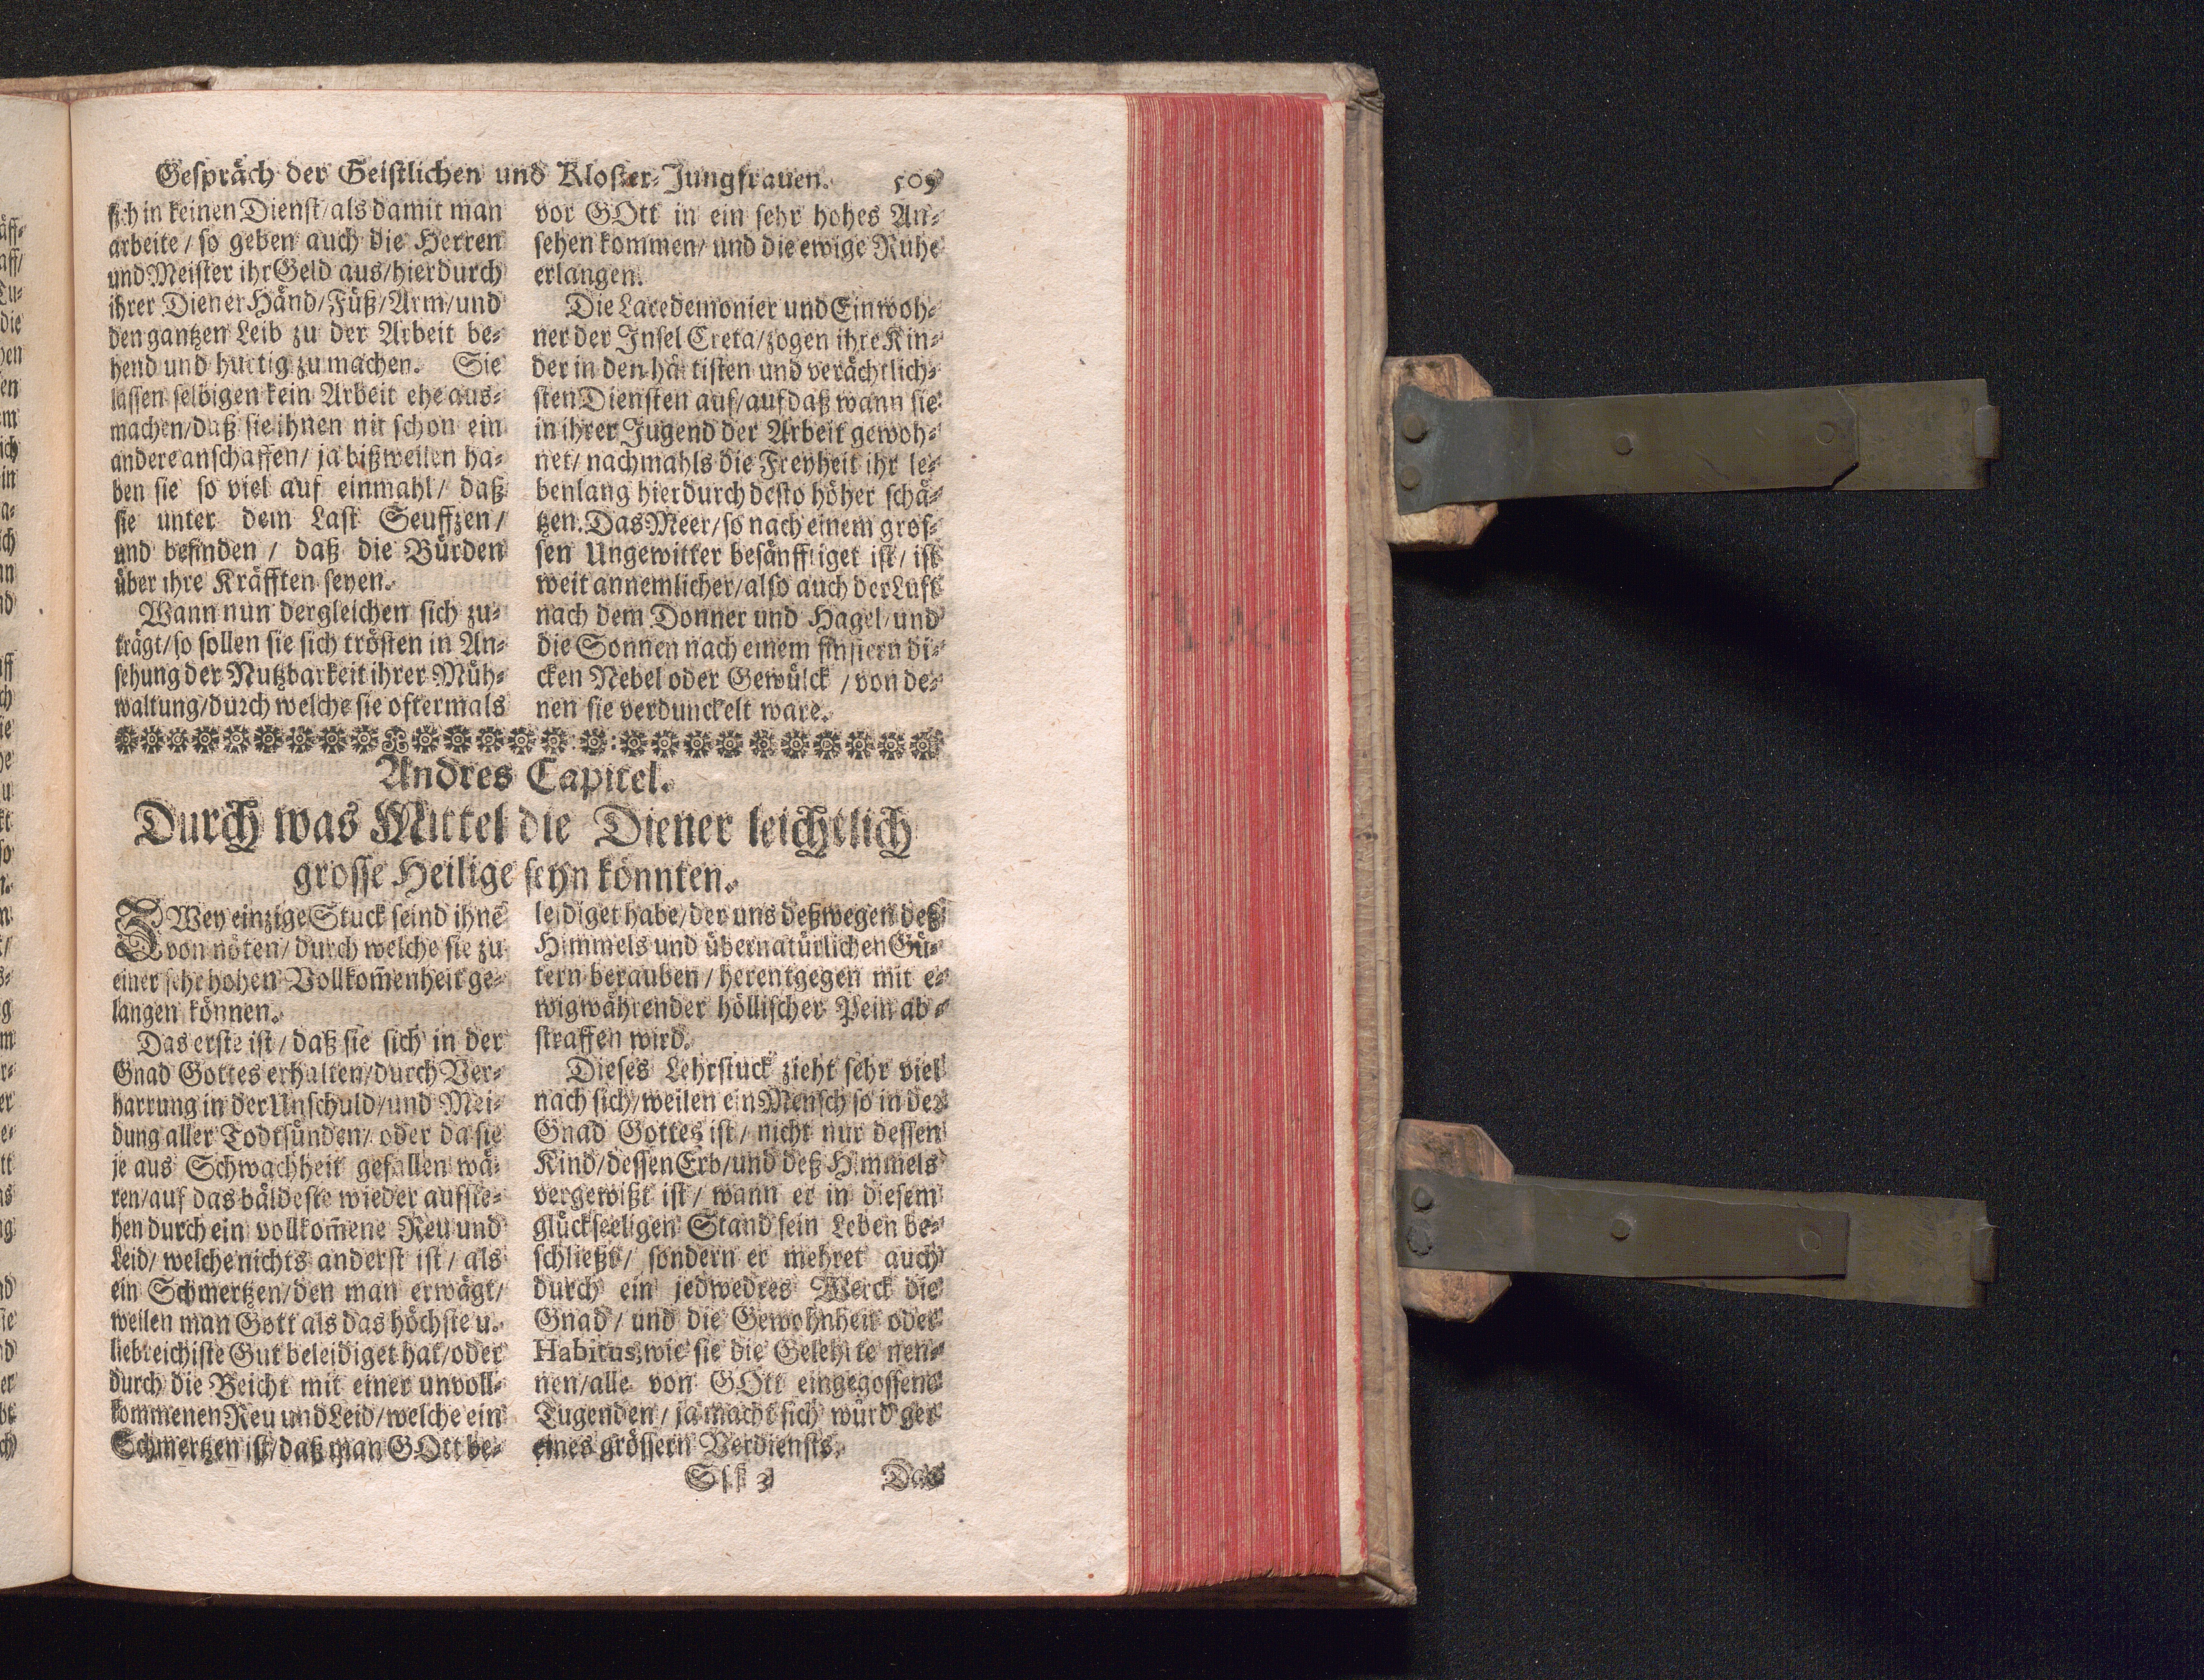 Gespräch der Geistlichen und Kloster-Jungfrauen. 509
sich in keinen Dienst/als damit man
arbeite / so geben auch die Herren
und Meister ihr Geld aus/hierdurch
ihrer Diener Händ/Füß/Arm/und
den gantzen Leib zu der Arbeit be-
hend und hurtig zu machen. Sie
lassen selbigen kein Arbeit ehe aus-
machen/daß sie ihnen nit schon ein
andere anschaffen/ ja bißweilen ha-
ben sie so viel auf einmahl/ daß
sie unter dem Last Seuffzen/
und befinden / daß die Bürden
über ihre Kräfften seyen.
Wann nun dergleichen sich zu-
trägt/so sollen sie sich trösten in An-
sehung der Nutzbarkeit ihrer Müh-
waltung/durch welche sie oftermals
vor GOtt in ein sehr hohes An-
sehen kommen/ und die ewige Ruhe
erlangen.
Die Lacedemonier und Einwoh-
ner der Insel Creta/zogen ihre Kin-
der in den härtisten und verächtlich-
sten Diensten auf/auf daß wann sie
in ihrer Jugend der Arbeit gewoh-
net/ nachmahls die Freyheit ihr le-
benlang hierdurch desto höher schä-
tzen. Das Meer/so nach einem gros-
sen Ungewitter besänfftiget ist/ ist
weit annemlicher/also auch der Luft
nach dem Donner und Hagel/und
die Sonnen nach einem finstern di-
cken Nebel oder Gewülck / von de-
nen sie verdunckelt ware.
Andres Capitel.
Durch was Mittel die Diener leichtlich
grosse Heilige seyn könnten.
ZWey einzige Stuck seind ihnē
von nöten/ durch welche sie zu
einer sehr hohen Vollkom̄enheit ge-
langen können.
Das erste ist/ daß sie sich in der
Gnad Gottes erhalten/durch Ver-
harrung in der Unschuld/und Mei-
dung aller Todtsünden/ oder da sie
je aus Schwachheit gefallen wä-
ren/auf das bäldeste wieder aufste-
hen durch ein vollkom̄ene Reu und
Leid/ welche nichts anderst ist/ als
ein Schmertzen/den man erwägt/
weilen man Gott als das höchste u.
liebreichiste Gut beleidiget hat/oder
durch die Beicht mit einer unvoll-
kommenen Reu und Leid/welche ein
Schmertzen ist/daß man GOtt be-
leidiget habe/der uns deßwegen deß
Himmels und übernatürlichen Gü-
tern berauben/ herentgegen mit e-
wigwährender höllischer Pein ab-
straffen wird.
Dieses Lehrstuck zieht sehr viel
nach sich/weilen ein Mensch so in der
Gnad Gottes ist/ nicht nur dessen
Kind/dessen Erb/und deß Himmels
vergewißt ist/ wann er in diesem
glückseeligen Stand sein Leben be-
schließt/ sondern er mehret auch
durch ein jedwedres Werck die
Gnad/ und die Gewohnheit oder
Habitus, wie sie die Gelehrte nen-
nen/alle von GOtt eingegossene
Tugenden/ ja macht sich würdiger
eines grössern Verdiensts.
Sss 3 Das